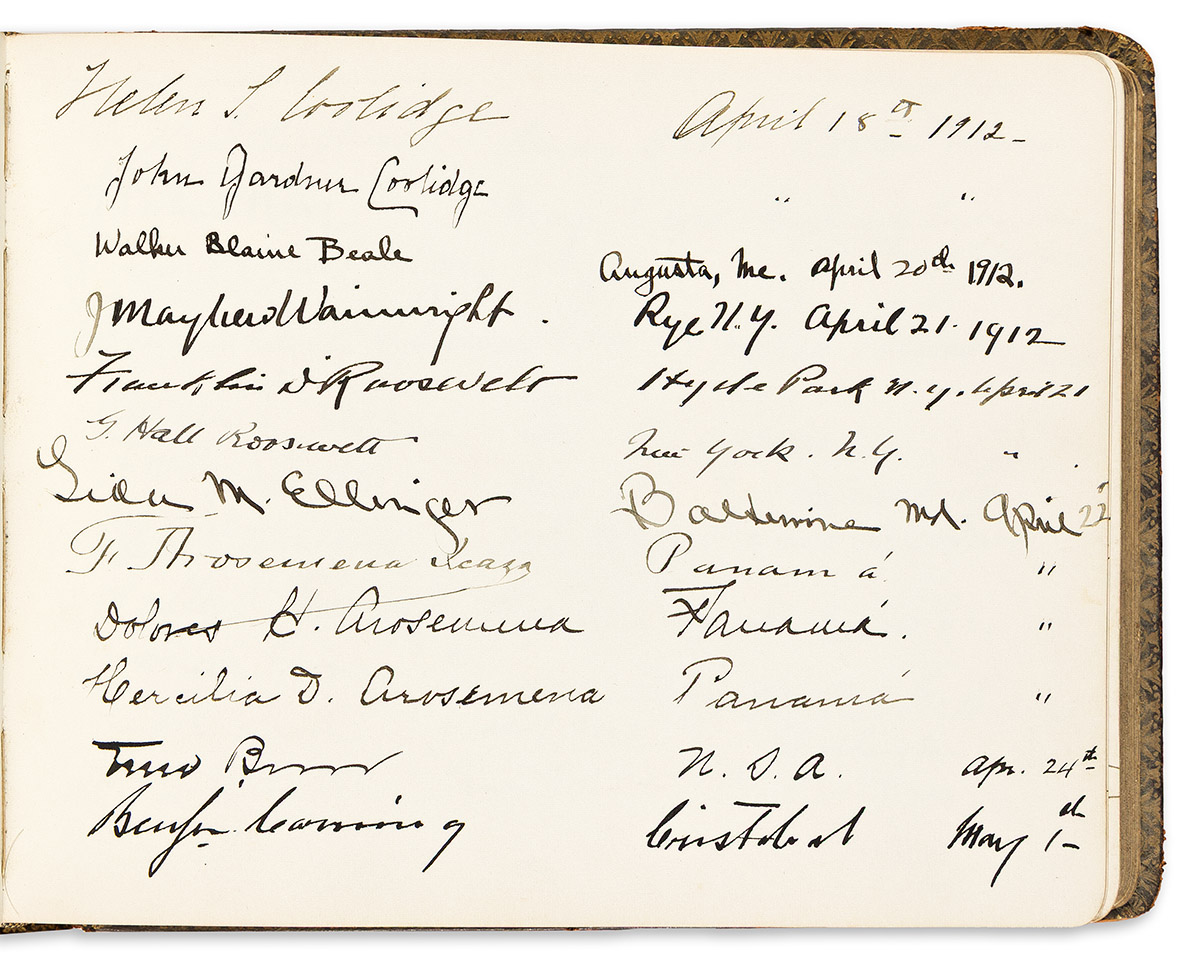 Helen S. Coolidge April 18th 1912-
John Gardner Coolidge " "
Walker Blaine Beale Augusta, Me. April 20th 1912.
J Mayhew Wainwright. Rye N.Y. April 21. 1912
Franklin D Roosevelt Hyde Park N.Y. April 21
G. Hall Roosevelt New York. N.Y. "
M. Ellinger Baltimore Md. April 22
F. Arosemena Icaza Panamá "
Dolores H. Arosemena Panamá. "
Hercilia D. Arosemena Panamá "
Apr. 24th
Cristobal May 1